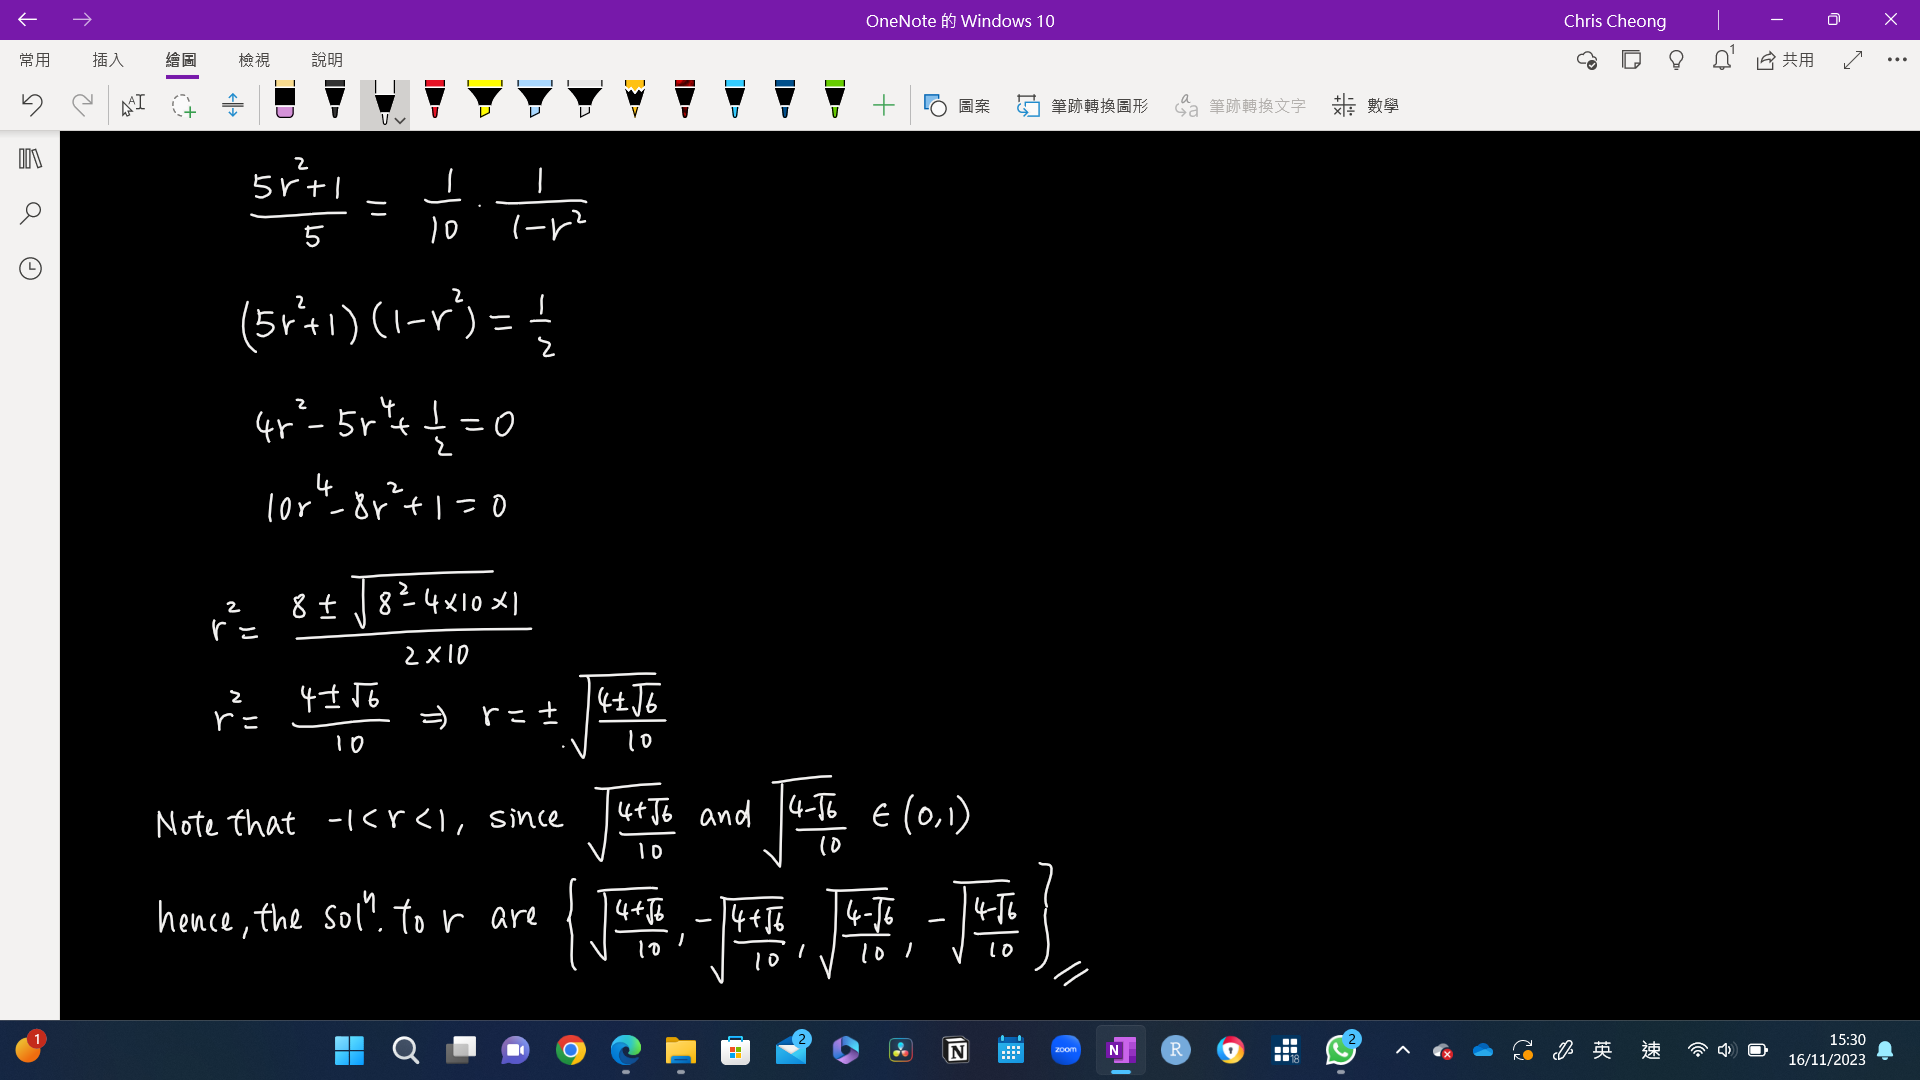 OneNote 的 Windows 10
Chris Cheong
常用 插入 繪圖 檢視 說明
1
共用
圖案 筆跡轉換圖形 筆跡轉換文字 數學
(5r²+1)/5 = 1/10 · 1/(1-r²)
(5r²+1)(1-r²) = 1/2
4r² - 5r⁴ + 1/2 = 0
10r⁴ - 8r² + 1 = 0
r² = (8 ± √(8² - 4×10×1))/(2×10)
r² = (4±√6)/10 ⇒ r = ± √((4±√6)/10)
Note that -1<r<1, since √((4+√6)/10) and √((4-√6)/10) ∈ (0,1)
hence, the solⁿ. to r are {√((4+√6)/10), -√((4+√6)/10), √((4-√6)/10), -√((4-√6)/10)}
1
2
zoom
N
R
18
2
英
速
15:30
16/11/2023